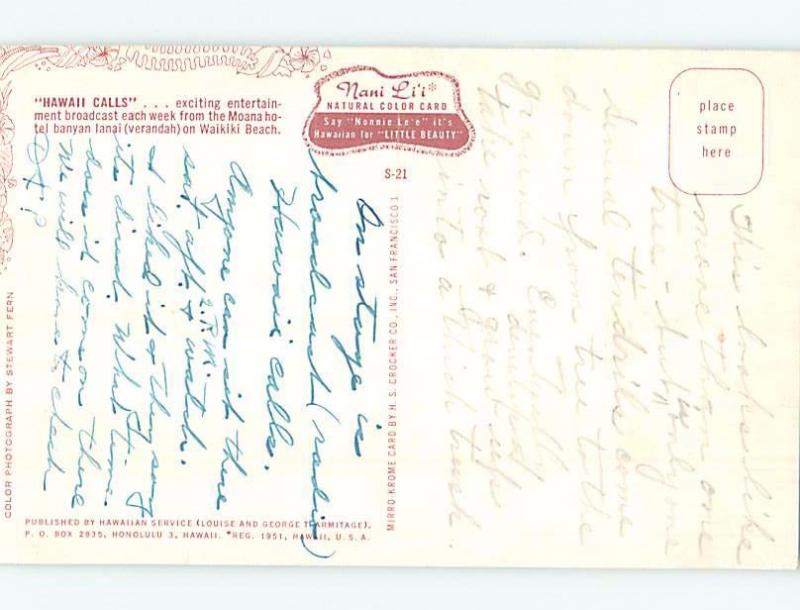 "HAWAII CALLS" . . . exciting entertain-
ment broadcast each week from the Moana ho-
tel banyan lanai (verandah) on Waikiki Beach.
Nani Li'i*
NATURAL COLOR CARD
Say "Nonnie Le'e" it's
Hawaiian for "LITTLE BEAUTY"
S-21
place
stamp
here
On stage is
broadcast (radio)
Hawaii Calls.
Anyone can sit there
sat. aft. & watch.
2 P.M.
I liked it & they say
its direct. What time
does it come on there
We will have to check
D.H.?
This looks like
more than one
tree - but is only one
Several tendrils come
down from tree to the
ground. Eventually
take root & grow up
into a thick trunk.
COLOR PHOTOGRAPH BY STEWART FERN
MIRRO-KROME CARD BY H. S. CROCKER CO., INC., SAN FRANCISCO 1
PUBLISHED BY HAWAIIAN SERVICE (LOUISE AND GEORGE T. ARMITAGE),
P. O. BOX 2835, HONOLULU 3, HAWAII. *REG. 1951, HAWAII, U. S. A.